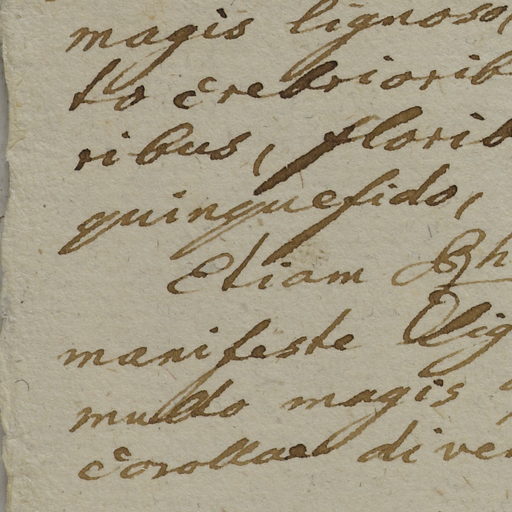 magis lignoso,
to crebriorib
ribus, florib
quinquefido,
Etiam Rh
manifeste Dig
multo magis
Corollae diver